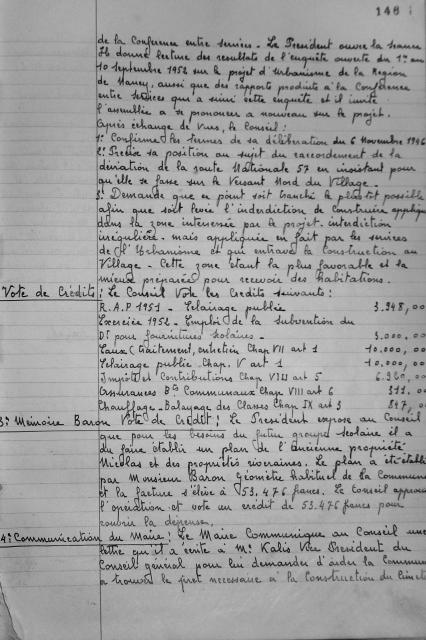 148
de la Conférence entre services. Le Président ouvre la séance
Il donne lecture des résultats de l'enquête ouverte du 1er au
10 septembre 1952 sur le projet d'Urbanisme de la Région
de Nancy, aussi que des rapports produits à la Conférence
entre services qui a suivi cette enquête et il invite
l'assemblée à se prononcer à nouveau sur le projet.
Après échange de Vues, le Conseil :
1° Confirme les termes de sa délibération du 6 Novembre 1946
2° Précise sa position au sujet du raccordement de la
déviation de la route Nationale 57 en insistant pour
qu'elle se fasse sur le Versant Nord du Village.
3° Demande que ce point soit tranché le plus tôt possible
afin que soit levée l'interdiction de construire
dans la zone intéressée par le projet. interdiction
irrégulière. mais appliquée en fait par les services
de l'Urbanisme et qui entrave la construction au
Village. Cette zone étant la plus favorable et la
mieux préparée pour recevoir des habitations.
Vote de Crédits : Le Conseil Vote les Crédits suivants :
R.A.P 1951 - Eclairage public 3.948,00
Exercice 1952 - Emploi de la subvention du
Dt pour fournitures scolaires - 3.000,00
Eaux (traitement, entretien Chap. VII art 1 10.000,00
Eclairage public Chap. V art 1 10.000,00
Impôts et Contributions Chap VIII art 5
Assurances Bts Communaux Chap VIII art 6 311,00
Chauffage - Balayage des Classes Chap IX art 3 847,00
3° Mémoire Baron Vote de Crédit : Le Président expose au Conseil
que pour les besoins du futur groupe scolaire il a
du faire établir un plan de l'ancienne propriété
Nicolas et des propriétés riveraines. Le plan a été établi
par Monsieur Baron Géomètre habituel de la Commune
et la facture s'élève à 53.476 francs. Le Conseil approuve
l'opération et vote un crédit de 53.476 francs pour
couvrir la dépense.
4° Communication du Maire : Le Maire Communique au Conseil une
lettre qu'il a écrite à Mr Kalis Vice Président du
Conseil général pour lui demander d'aider la Commune
à trouver le prêt nécessaire à la Construction du